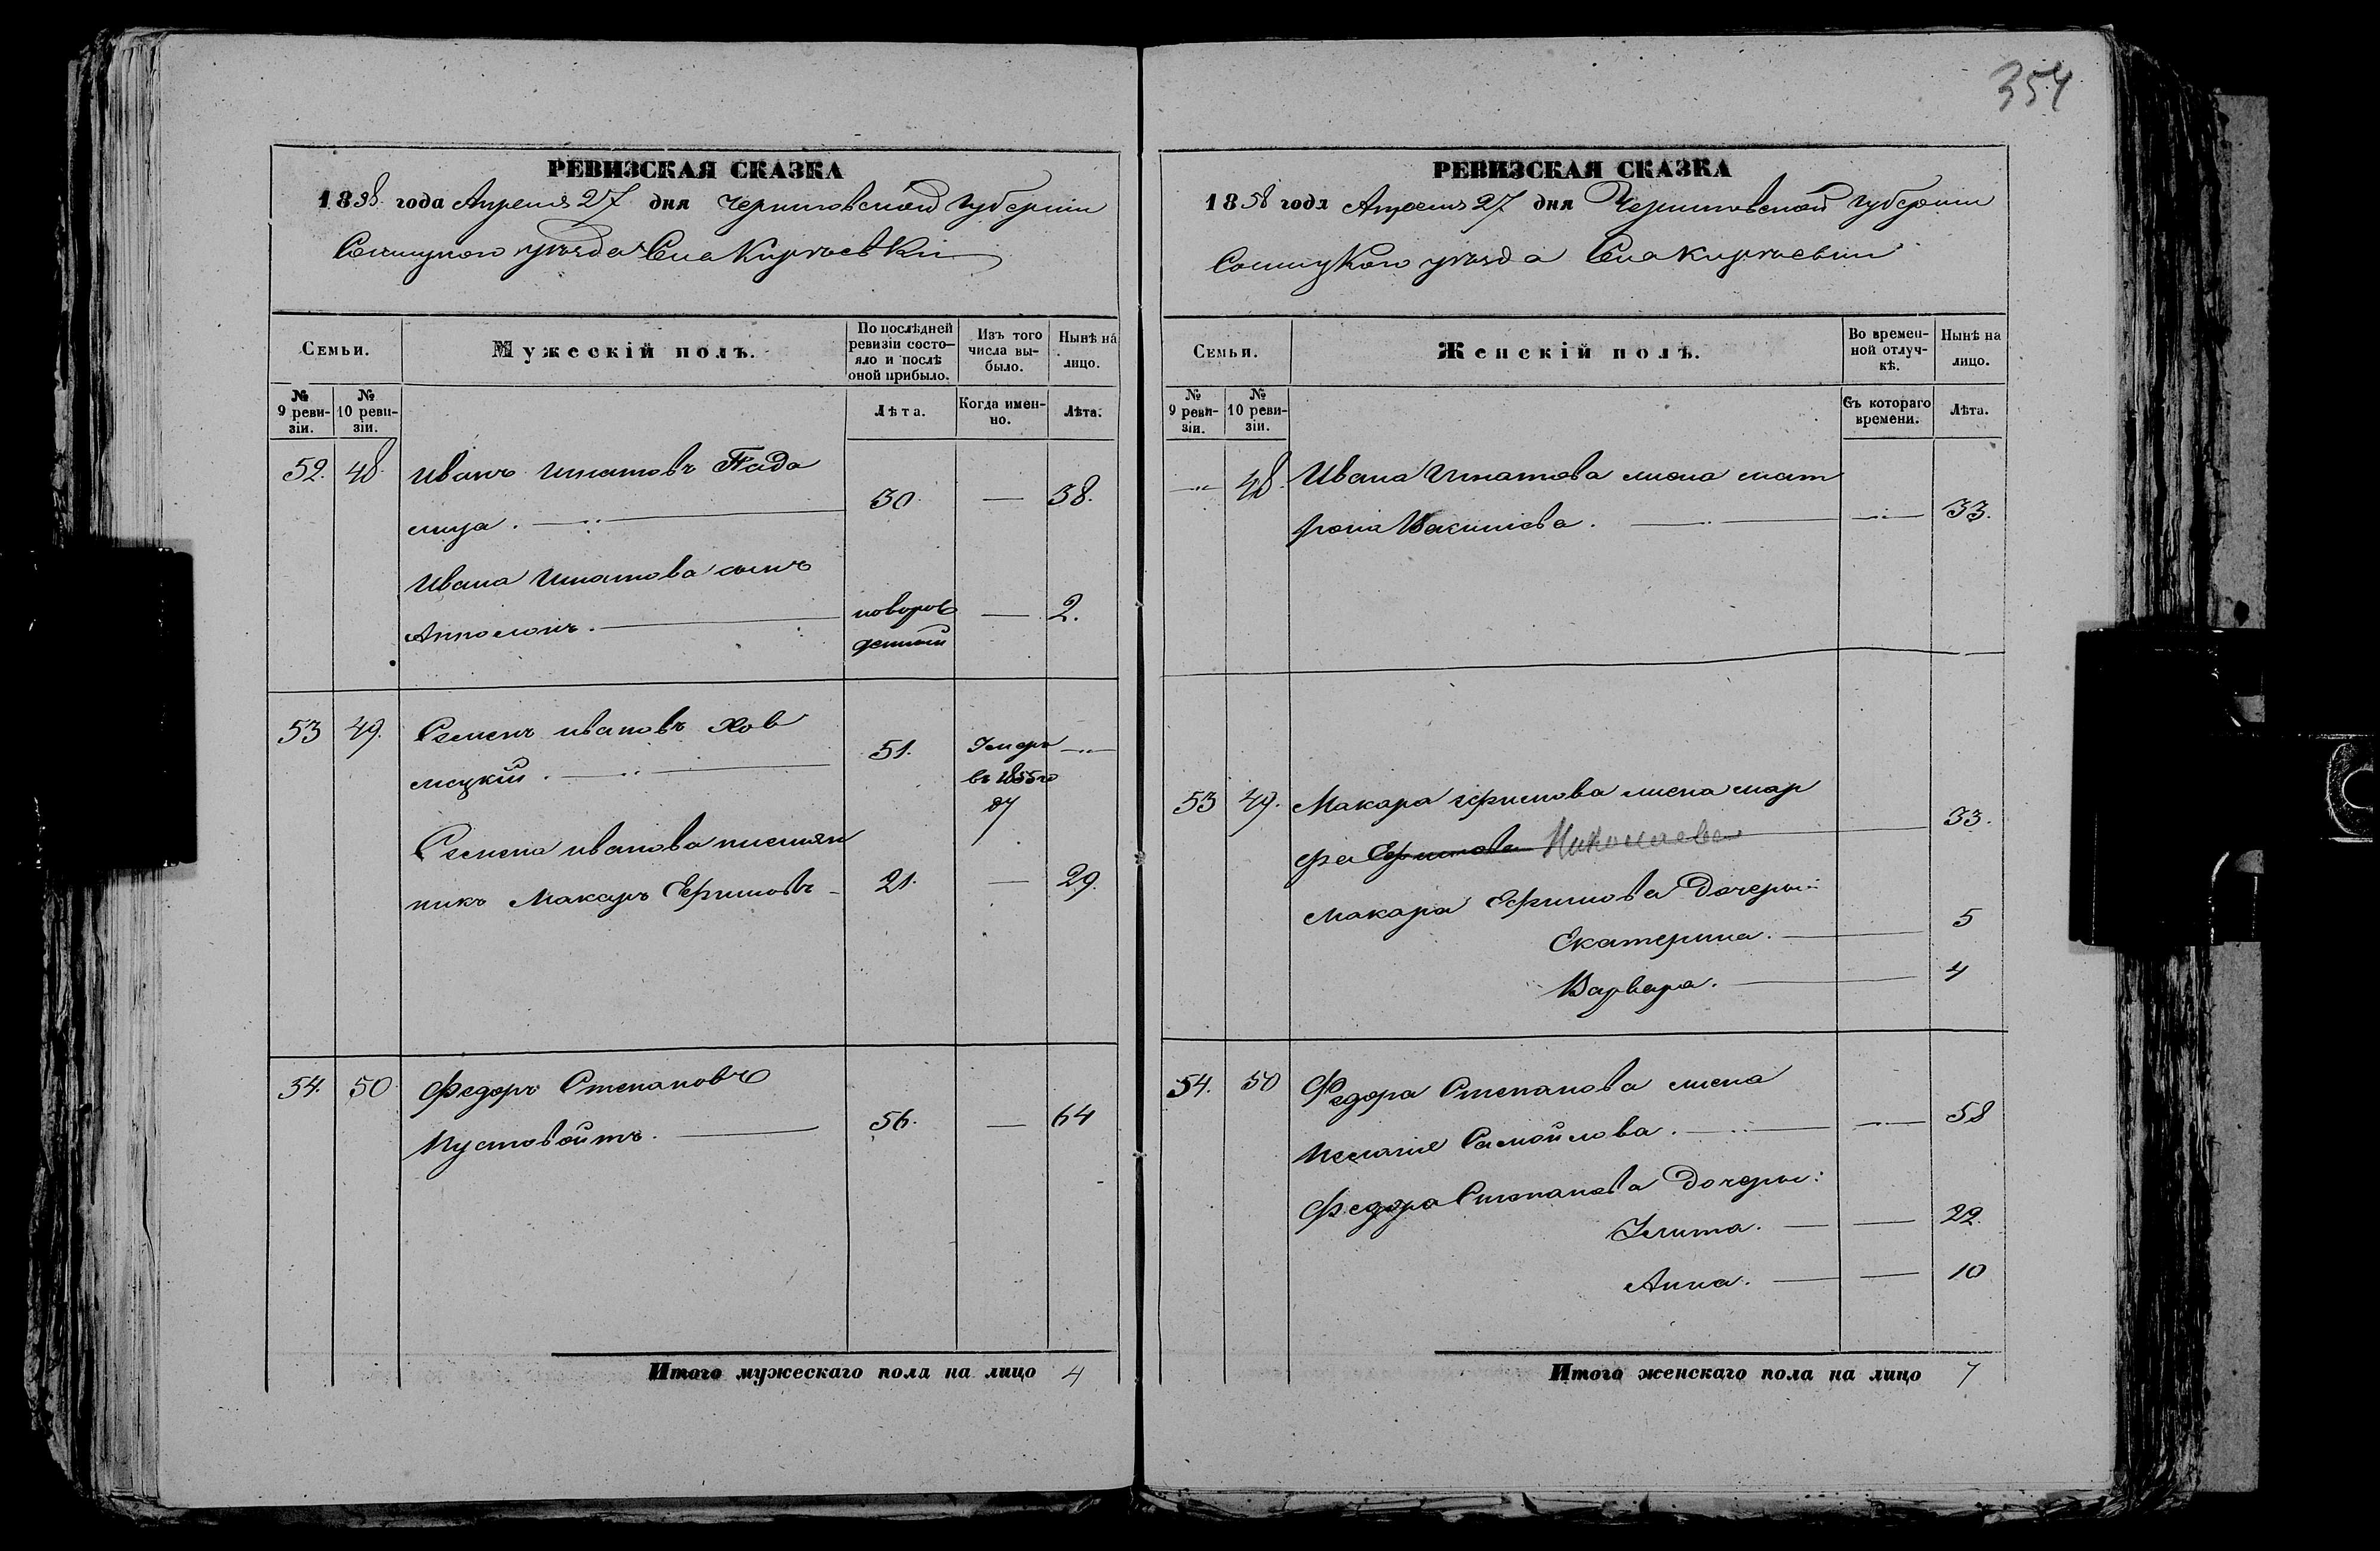 354
РЕВИЗСКАЯ СКАЗКА
1858 года Апреля 27 дня Черниговской Губернии
Сосницкого уѣзда Села Киріаевки
Семьи.
Мужескій полъ.
По послѣдней ревизіи состояло и послѣ оной прибыло.
Изъ того числа выбыло.
Нынѣ на лицо.
№ 9 ревизіи.
№ 10 ревизіи.
Лѣта.
Когда именно.
Лѣта.
52. 48. Иванъ Игнатовъ Пада
лица. 30. — 38.
Ивана Игнатова сынъ
Апполонъ. новорож — 2.
денный
53 49. Семенъ Ивановъ Хов
мецкій. 51. Умеръ —
въ 1855 го
ду
Семена Иванова племян
никъ Макаръ Ефимовъ 21. — 29.
54. 50 Федоръ Степановъ
Пустовойтъ. 56. — 64
Итого мужескаго пола на лицо 4
РЕВИЗСКАЯ СКАЗКА
1858 года Апреля 27 дня Черниговской Губернии
Сосницкого уѣзда Села Киріаевки
Семьи.
Женскій полъ.
Во временной отлучкѣ.
Нынѣ на лицо.
№ 9 ревизіи.
№ 10 ревизіи.
Съ котораго времени.
Лѣта.
— 48. Ивана Игнатова жена Мат
рона Васильева. — 33.
53 49. Макара Ефимова жена Мар
фа Ефимова Николаева 33.
Макара Ефимова Дочери:
Екатерина. 5
Варвара. 4
54. 50 Федора Степанова жена
Пелагія Самойлова. — 58
Федора Степанова Дочери:
Улита. — — 22.
Анна. — — 10
Итого женскаго пола на лицо 7